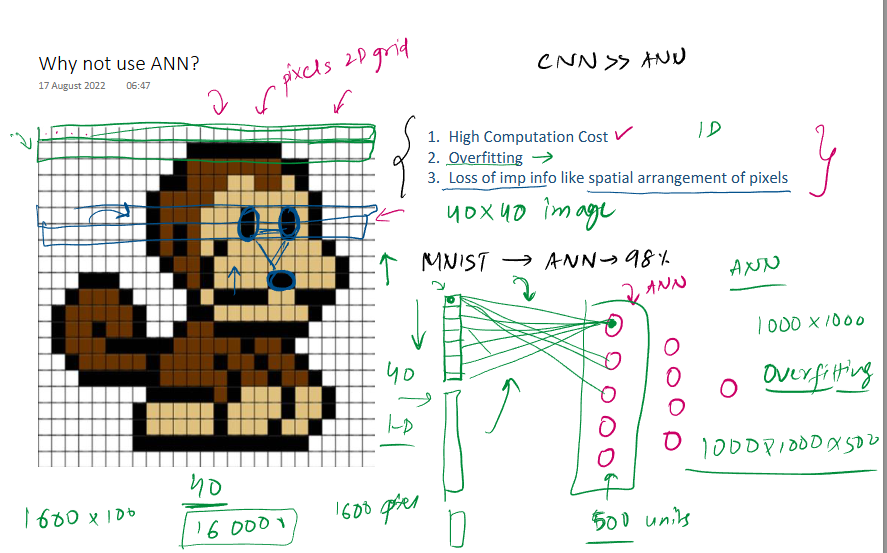 Why not use ANN?
17 August 2022 06:47
pixels 2D grid
CNN >> ANN
1. High Computation Cost ✓
2. Overfitting →
3. Loss of imp info like spatial arrangement of pixels
1D
40x40 image
MNIST → ANN → 98%
ANN
ANN
1000 x 1000
40
Overfitting
1-D
1000x1000x500
40
1600 x 100
16 000
1600
500 units